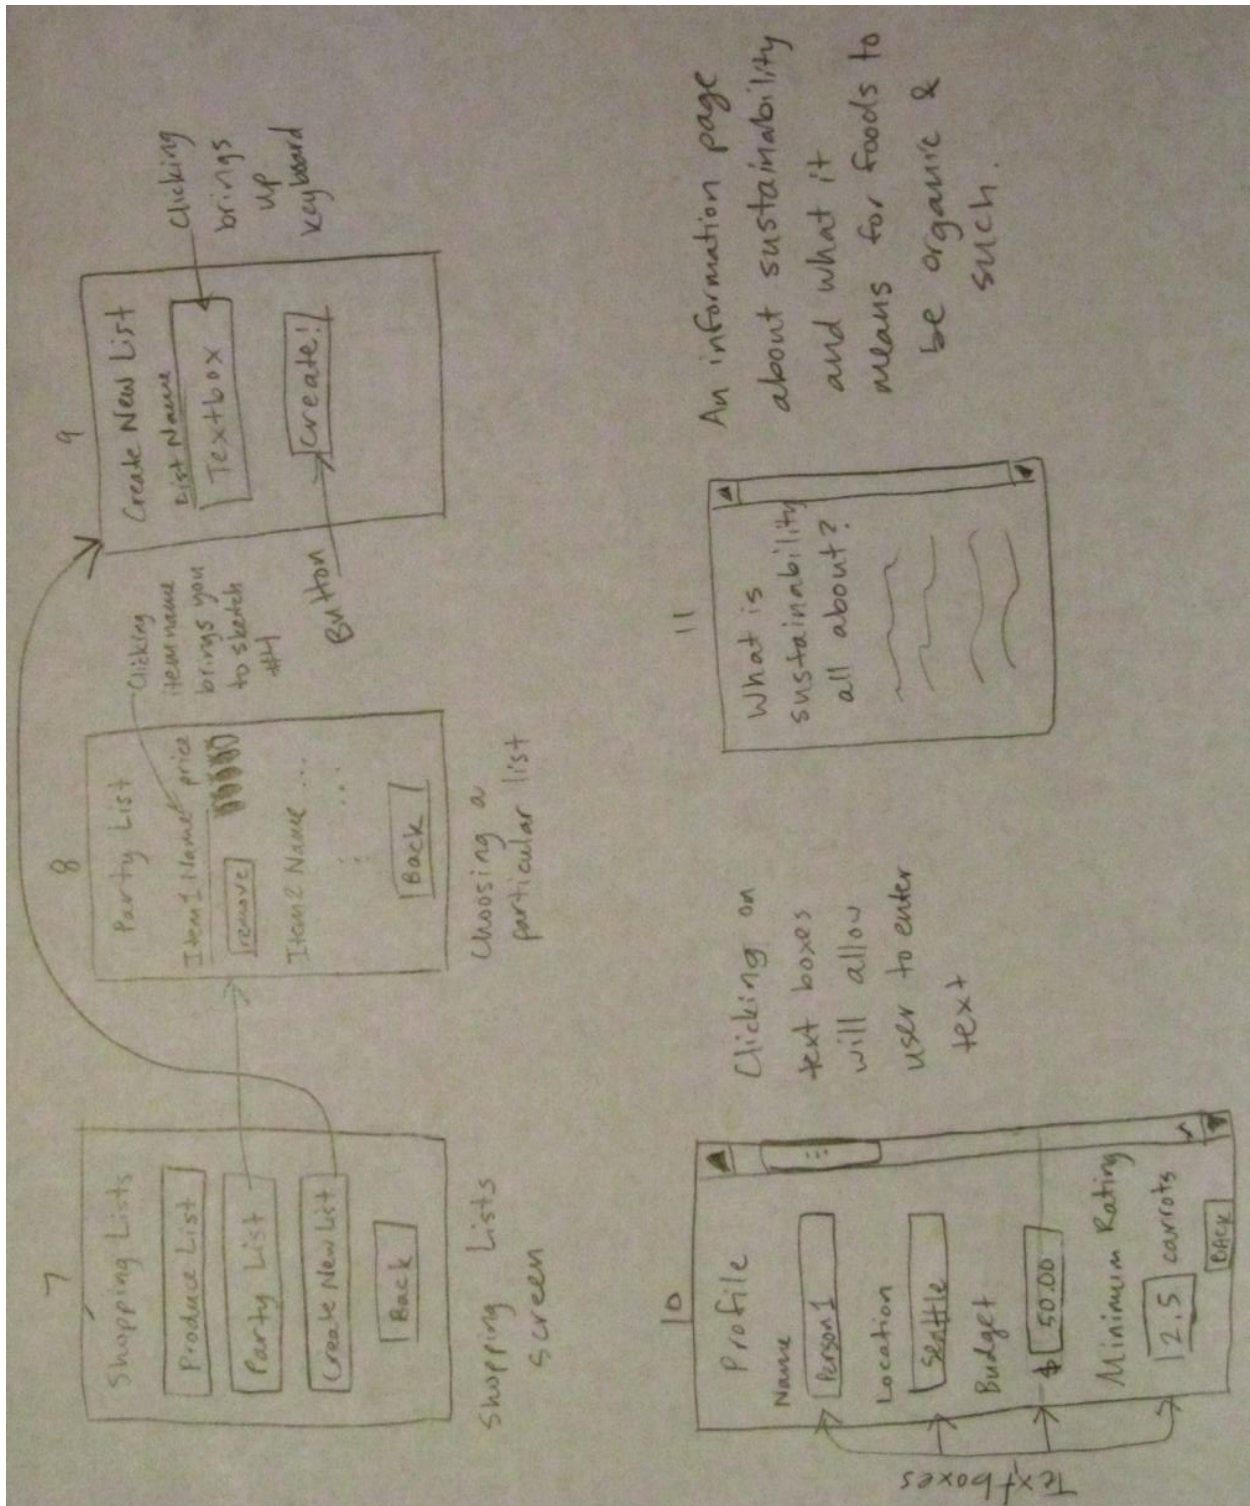 7
Shopping Lists
Produce List
Party List
Create New List
Back
Shopping Lists
screen
8
Party List
Item 1 Name price
remove
Item 2 Name ...
Back
Choosing a
particular list
Clicking
item name
brings you
to sketch
#4
9
Create New List
List Name
Textbox
Create!
Button
Clicking
brings
up
keyboard
10
Profile
Name
Person 1
Location
Seattle
Budget
$ 50.00
Minimum Rating
2.5 carrots
BACK
Textboxes
Clicking on
text boxes
will allow
user to enter
text
11
What is
sustainability
all about?
An information page
about sustainability
and what it
means for foods to
be organic &
such.